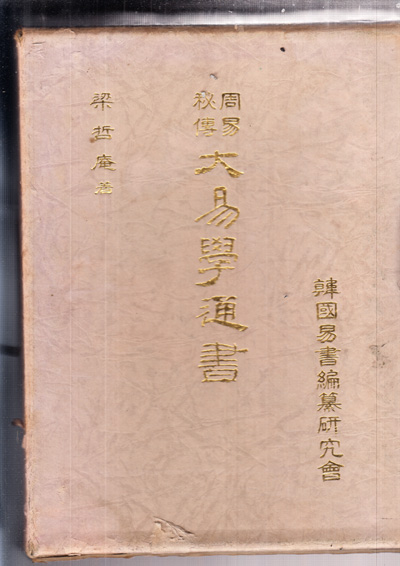 韓國易書編纂研究會
周易
秘傳
大易學通書
梁哲庵著